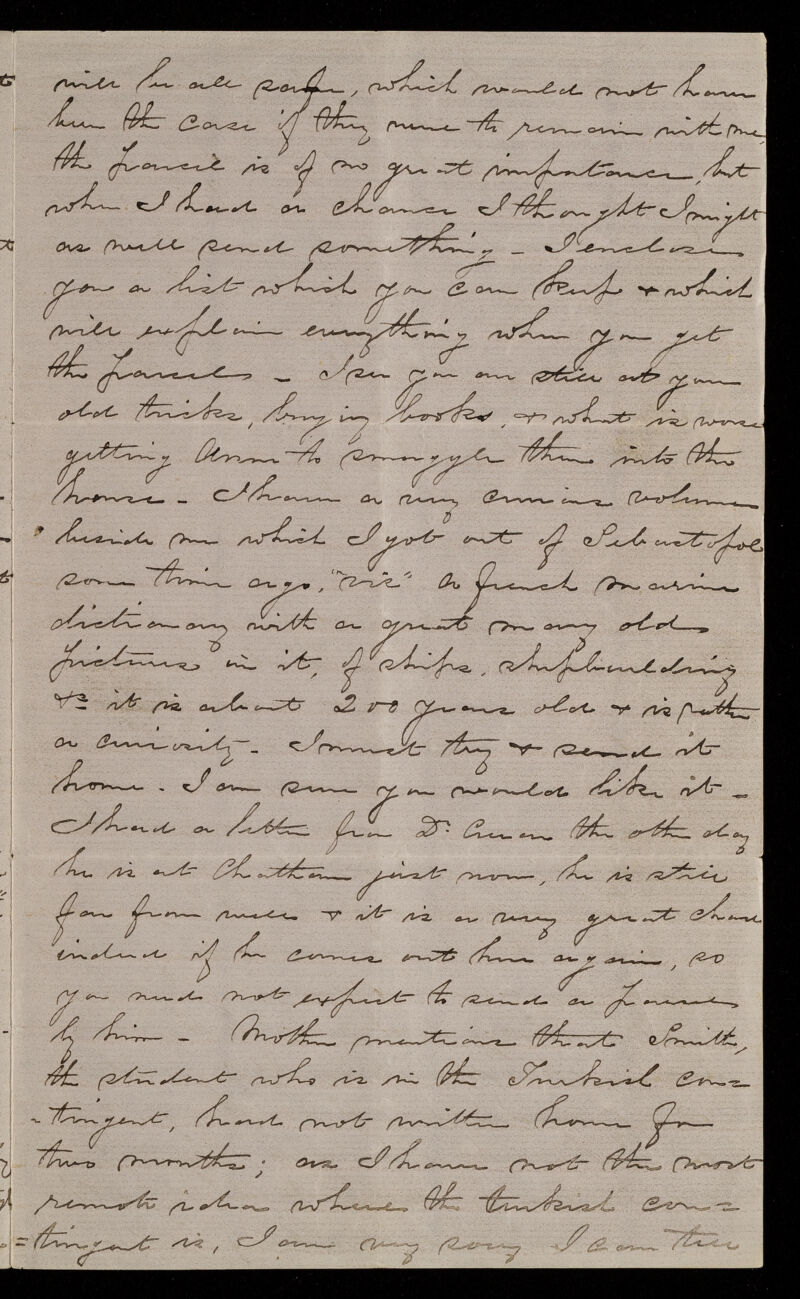 will be all safe, which would not have
been the case if they were to remain with me,
the parcel is of no great importance, but
when I had a chance I thought I might
as well send something - I enclose
you a list which you can keep + which
will explain everything when you get
the parcels - I see you are still at your
old tricks, buying books, + what is worse
getting Anne to smuggle them into the
house - I have a very curious volume
beside me which I got out of Sebastopol
some time ago, "viz" a french marine
dictionary with a great many old
pictures in it, of ships, shipbuilding
&c it is about 200 years old + is rather
a curiosity - I must try + send it
home. I am sure you would like it -
I had a letter from Dr. the other day
he is at Chatham just now, he is still
far from well + it is a very great chance
indeed if he comes out here again, so
you need not expect to send a parcel
by him - Mother mentions that Smith,
the student who is in the Turkish con=
=tingent, had not written home for
two months; as I have not the most
remote idea where the turkish con=
=tingent is, I am very sorry I can tell